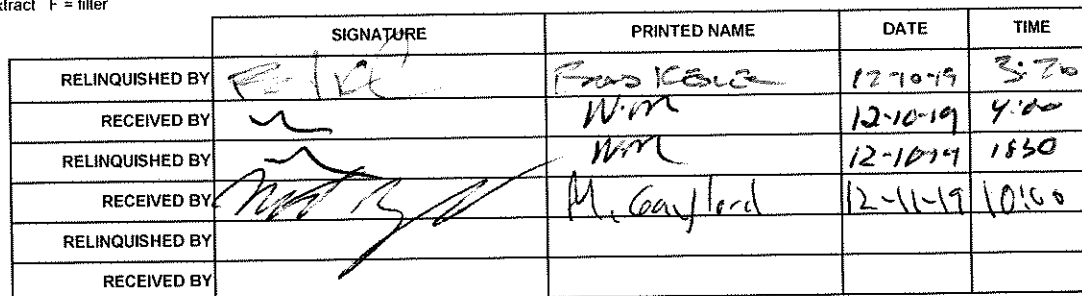 xtract F = filter
SIGNATURE PRINTED NAME DATE TIME
RELINQUISHED BY 12-10-19
RECEIVED BY W.M 12-10-19 4:00
RELINQUISHED BY WM 12-10-19 1830
RECEIVED BY M. Gaylord 12-11-19 10:00
RELINQUISHED BY
RECEIVED BY